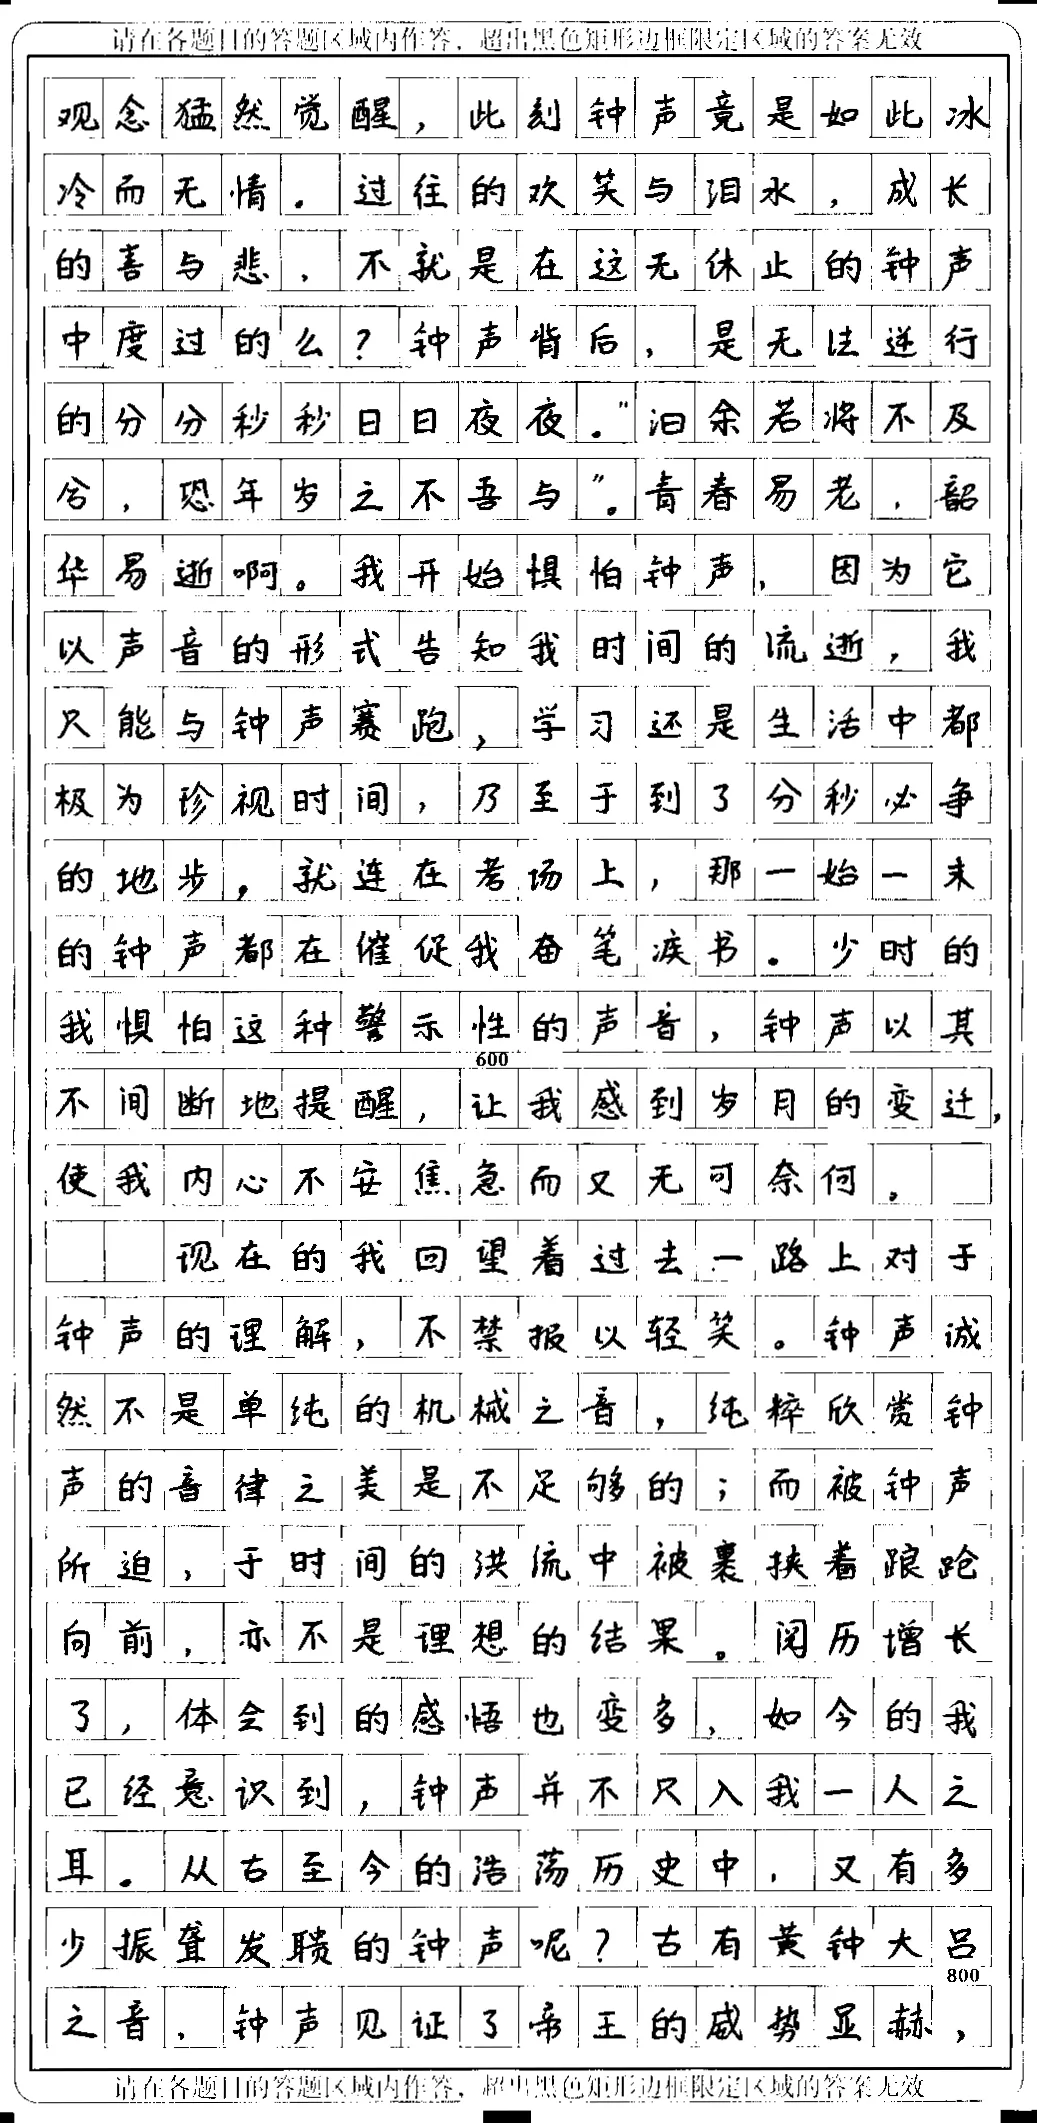 请在各题目的答题区域内作答，超出黑色矩形边框限定区域的答案无效
观念猛然觉醒，此刻钟声竟是如此冰
冷而无情。过往的欢笑与泪水，成长
的喜与悲，不就是在这无休止的钟声
中度过的么？钟声背后，是无法逆行
的分分秒秒日日夜夜。“汩余若将不及
兮，恐年岁之不吾与”。青春易老，韶
华易逝啊。我开始惧怕钟声，因为它
以声音的形式告知我时间的流逝，我
只能与钟声赛跑，学习还是生活中都
极为珍视时间，乃至于到了分秒必争
的地步，就连在考场上，那一始一末
的钟声都在催促我奋笔疾书。少时的
我惧怕这种警示性的声音，钟声以其
600
不间断地提醒，让我感到岁月的变迁，
使我内心不安焦急而又无可奈何。
现在的我回望着过去一路上对于
钟声的理解，不禁报以轻笑。钟声诚
然不是单纯的机械之音，纯粹欣赏钟
声的音律之美是不足够的；而被钟声
所迫，于时间的洪流中被裹挟着踉跄
向前，亦不是理想的结果。阅历增长
了，体会到的感悟也变多，如今的我
已经意识到，钟声并不只入我一人之
耳。从古至今的浩荡历史中，又有多
少振聋发聩的钟声呢？古有黄钟大吕
800
之音，钟声见证了帝王的威势显赫，
请在各题目的答题区域内作答，超出黑色矩形边框限定区域的答案无效